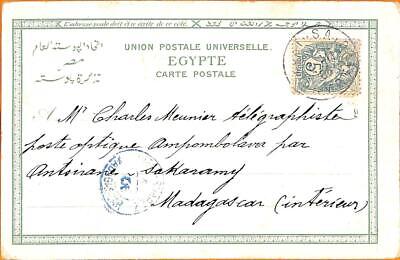 L'adresse seule doit être mise de ce côté.
اتحاد بوسته العام
مصر
تذكرة بوسته
UNION POSTALE UNIVERSELLE.
EGYPTE
CARTE POSTALE
A Mr Charles Meunier télégraphiste
poste optique Ampombolava par
Antsirane Sakaramy
Madagascar (intérieur)